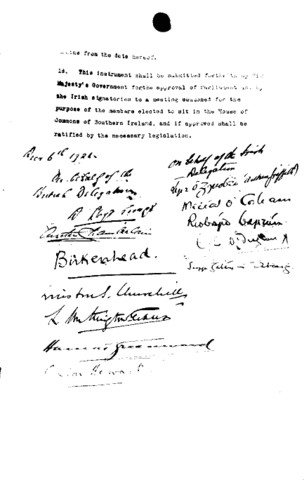 months from the date hereof.
18. This instrument shall be submitted forthwith by His
Majesty's Government for the approval of Parliament and by
the Irish signatories to a meeting summoned for the
purpose of the members elected to sit in the House of
Commons of Southern Ireland, and if approved shall be
ratified by the necessary legislation.
Decr 6th 1921.
On behalf of the
British Delegation
D Lloyd George
Austen Chamberlain
Birkenhead.
Winston S. Churchill
L Worthington-Evans
Hamar Greenwood
Gordon Hewart
On behalf of the Irish
Delegation
Art Ó Gríobhtha (Arthur Griffith)
Mícheál Ó Coileáin
Riobárd Bartún